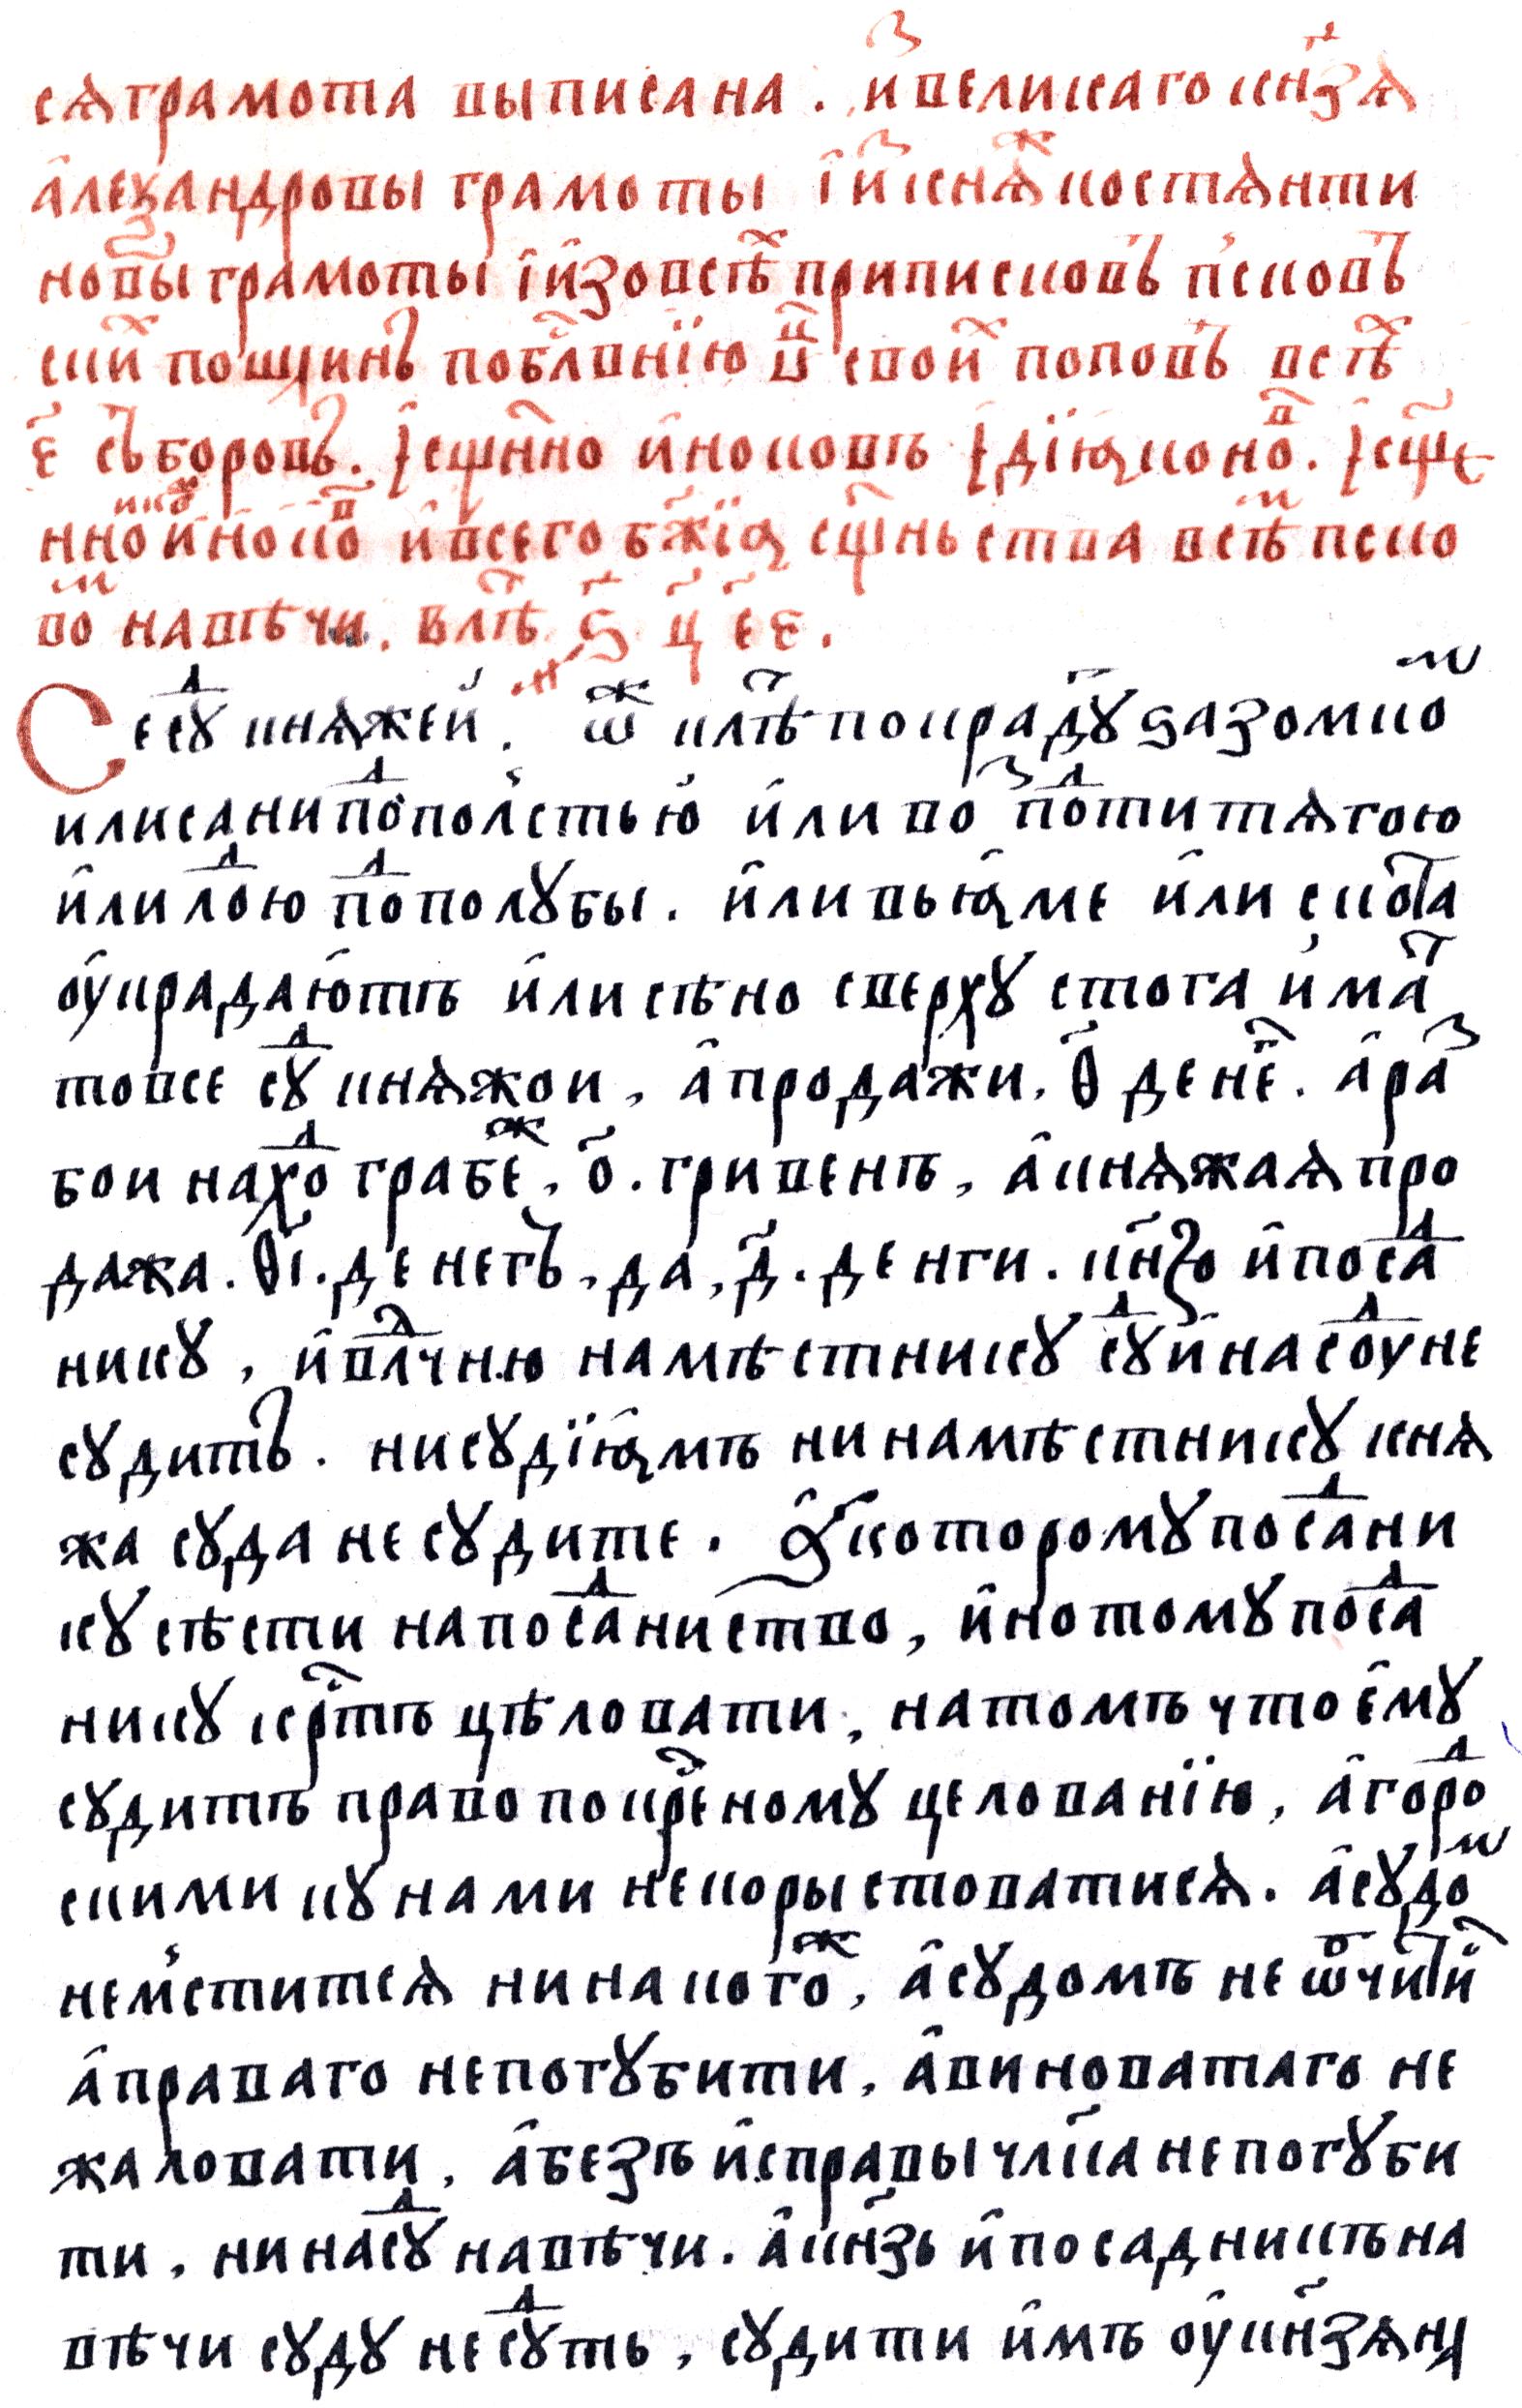 сѧ грамота выписана . и҆ⷥ великаго кн҃зѧ
а҆леѯандровы грамоты і҆ и҆ⷥ кнѧⷤ костѧнти
новы грамоты і҆ и҆зо всѣⷯ приписковъ п҆сков
скиⷯ пошлинъ по бл҃внїю ѿц҃ъ своиⷯ поповъ всѣⷯ
е҃ съборовъ . і҆ сщ҃нно и҆ноковъ і҆ дїꙗконоⷡ . і҆ сщ҃е
нникоⷡ и҆ всего бж҃їꙗ сщ҃ньства всѣⷨ пско
воⷨ на вѣчи . в лѣⷮ ҂ѕ҃ ц҃ е҃е .
Се сꙋⷣ кнѧжеи . ѡ҆ⷤ клѣⷮ покрадꙋⷮ за зомкоⷨ
или сани поⷣ полстью и҆ли воⷥ поⷣ титѧгою
и҆ли лоⷣю поⷣ полꙋбы . и҆ли в ьꙗме и҆ли скота
оу҆крадаю҆тъ и҆ли сѣно сверхꙋ стога и҆маⷮ
то все сꙋⷣ кнѧжои , а҆ продажи , ѳ҃ денеⷢ . а҆ раⷥ
бои нахоⷣ грабеⷤ , о҃ . гривенъ , а҆ кнѧжаѧ про
дажа . ѳ҃і . денегъ , да , д҃ . денги . кн҃зю и҆ посаⷣ
никꙋ , и҆ влⷣчню намѣстникꙋ сꙋⷣ и҆ на соуⷣ не
сꙋдить . ни сꙋдїꙗмъ ни намѣстникꙋ кнѧ
жа сꙋда не сꙋдите . а҆ которомꙋ посаⷣни
кꙋ сѣсти на посаⷣниство , и҆но томꙋ посаⷣ
никꙋ крⷭтъ цѣловати , на томъ что е҆мꙋ
сꙋдитъ право по крⷭеномꙋ целованїю , а҆ гороⷣ
скими кꙋнами не корыстоватисѧ . а҆ сꙋдоⷨ
не мститисѧ ни на когоⷤ , а҆ сꙋдомъ не ѿчитиⷭ
а҆ праваго не погꙋбити , а҆ виноватаго не
жаловати , а҆ безъ и҆справы чл҃ка не погꙋби
ти , ни на сꙋⷣ на вѣчи . а҆ кн҃зь и҆ посадникъ на
вѣчи сꙋдꙋ не сꙋⷣть , сꙋдити и҆мъ оу҆ кн҃зѧ на